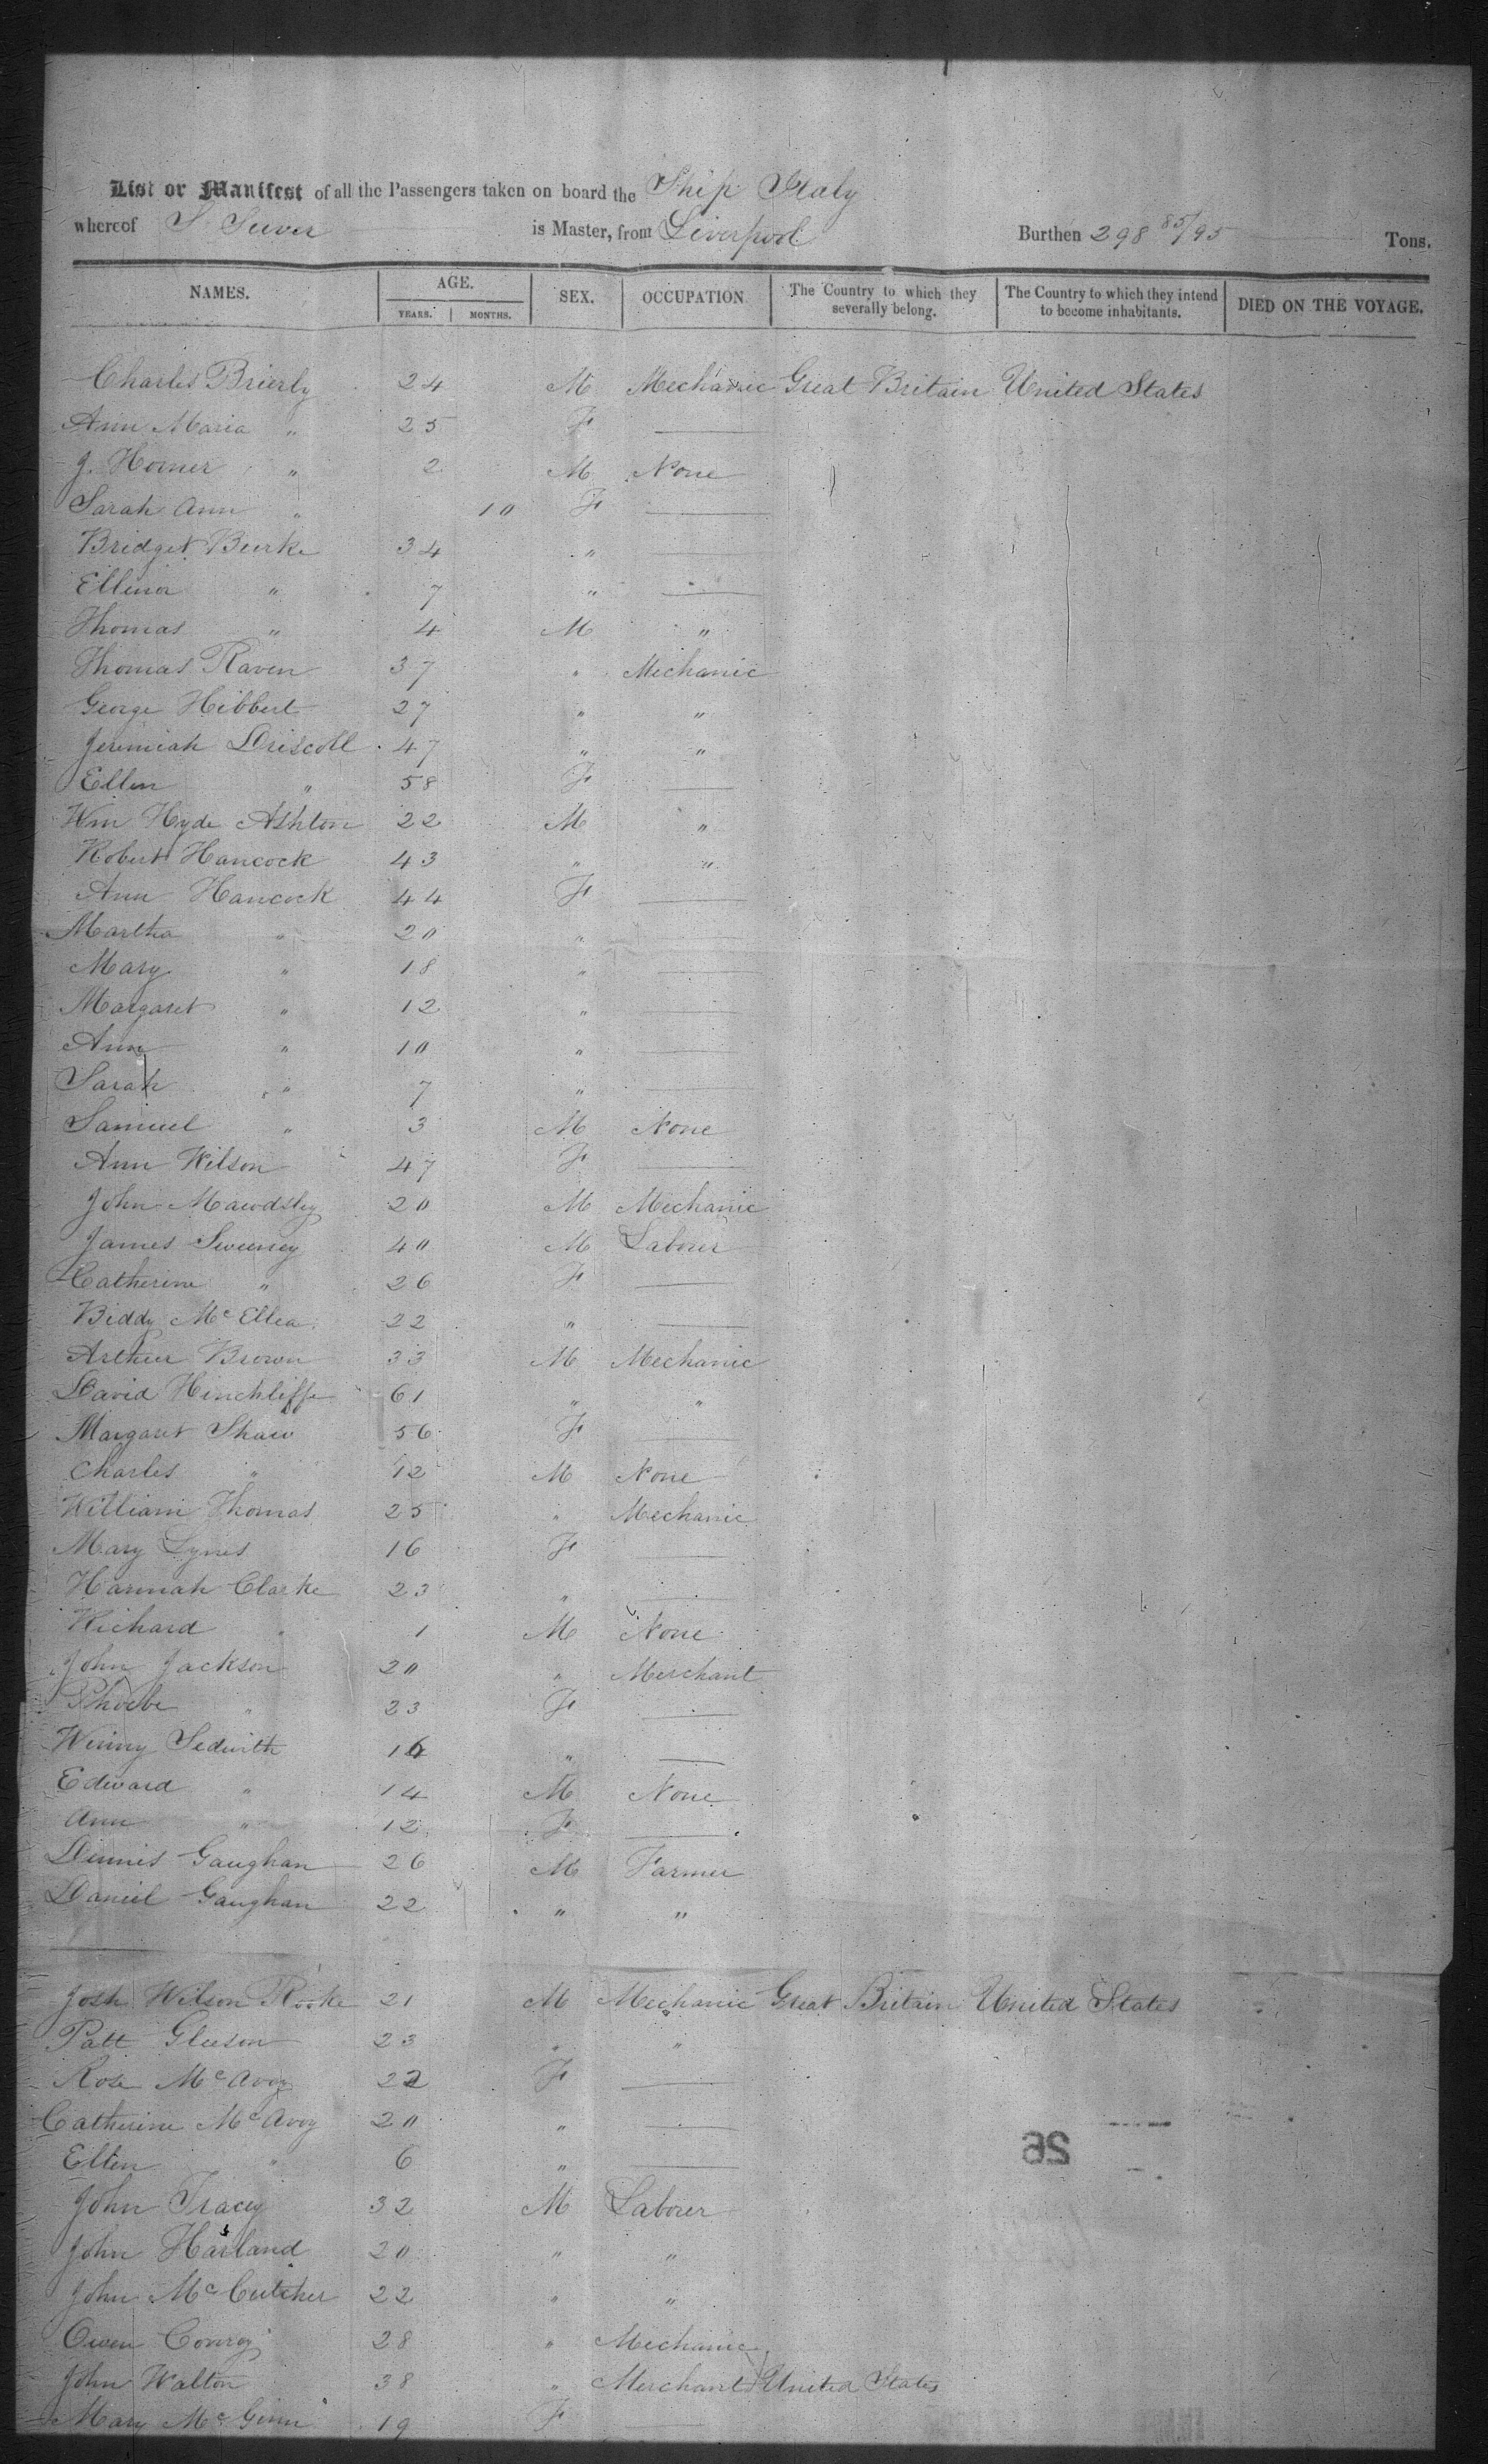 List or Manifest of all the Passengers taken on board the Ship Italy
whereof S Seever is Master, from Liverpool Burthen 298 85/95 Tons.
NAMES. AGE. SEX. OCCUPATION The Country to which they severally belong. The Country to which they intend to become inhabitants. DIED ON THE VOYAGE.
YEARS. MONTHS.
Charles Brierly 24 M Mechanic Great Britain United States
Ann Maria " 25 F
J. Horner " 2 M None
Sarah Ann " 10 F
Bridget Burke 34 "
Ellinor " 7 "
Thomas " 4 M "
Thomas Raven 37 " Mechanic
George Hibbert 27 " "
Jeremiah Driscoll 47 " "
Ellen " 58 F
Wm Hyde Ashton 22 M "
Robert Hancock 43 " "
Ann Hancock 44 F
Martha " 20 "
Mary " 18 "
Margaret " 12 "
Ann " 10 "
Sarah " 7 "
Samuel " 3 M None
Ann Wilson 47 F
John Mawdsley 20 M Mechanic
James Sweeney 40 M Laborer
Catherine " 26 F
Biddy McEllea 22 "
Arthur Brown 33 M Mechanic
David Hinchliffe 61 " "
Margaret Shaw 56 F
Charles " 12 M None
William Thomas 25 " Mechanic
Mary Lynes 16 F
Hannah Clarke 23 "
Richard " 1 M None
John Jackson 20 " Merchant
Phoebe " 23 F
Winny Sedwith 16 "
Edward " 14 M None
Ann " 12 F
Dennis Gaughan 26 M Farmer
Daniel Gaughan 22 " "
Josh Wilson Rooke 21 M Mechanic Great Britain United States
Patt Gleeson 23 " "
Rose McAvoy 22 F
Catherine McAvoy 20 "
Ellen " 6 "
John Tracey 32 M Laborer
John Harland 20 " "
John McCutcher 22 " "
Owen Conroy 28 " Mechanic
John Walton 38 " Merchant United States
Mary McGinn 19 F